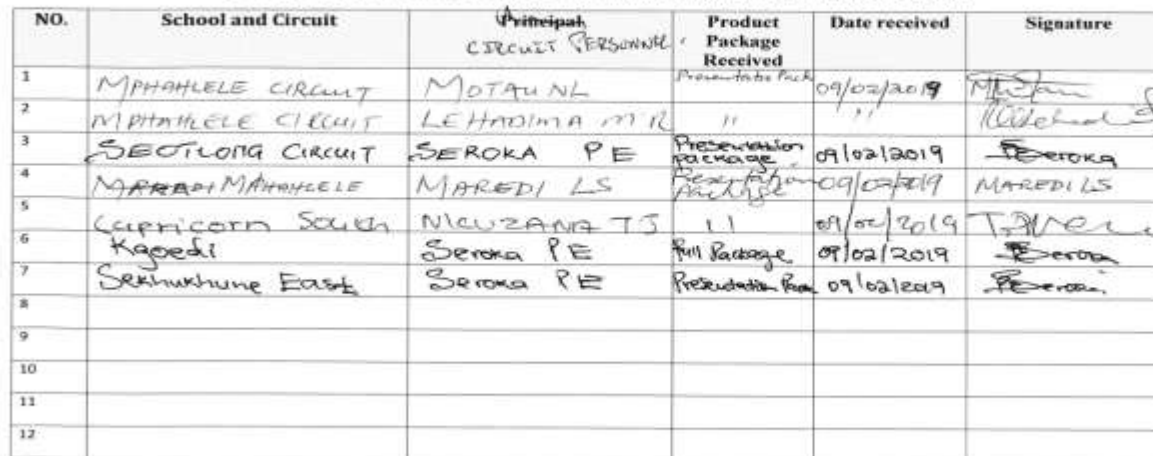 NO. School and Circuit Principal Product Date received Signature
CIRCUIT PERSONNEL Package
Received
1 MPHAHLELE CIRCUIT MOTAU NL Presentatio Pack 09/02/2019
2 MPHAHLELE CIRCUIT LEHADIMA M R " "
3 SEOTLONG CIRCUIT SEROKA PE Presentation package 09/02/2019 PESeroka
4 MPHAHLELE MAREDI LS Presentation Package 09/02/2019 MAREDI LS
5 Capricorn South TJ " 09/02/2019
6 Kgoedi Seroka PE Full Package 09/02/2019
7 Sekhukhune East Seroka PE Presentation Pack 09/02/2019
8
9
10
11
12